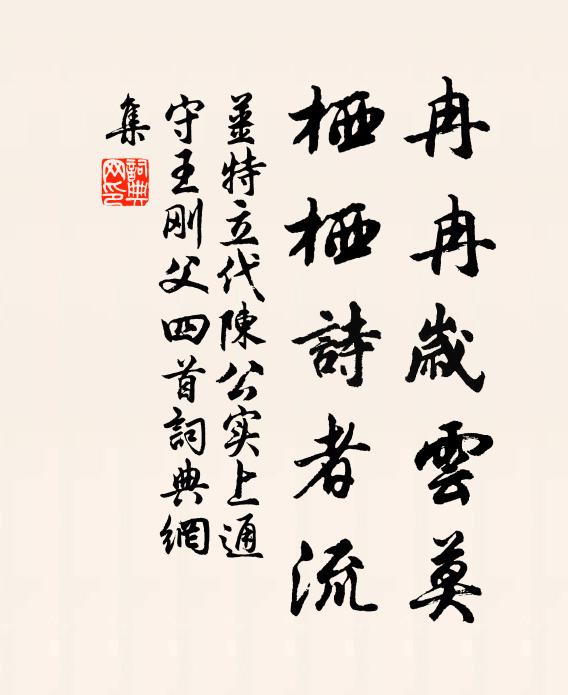 冉冉歲雲莫
栖栖詩者流
薑特立代陳公实上通
守王刚父四首詞典網
集
詞典網印